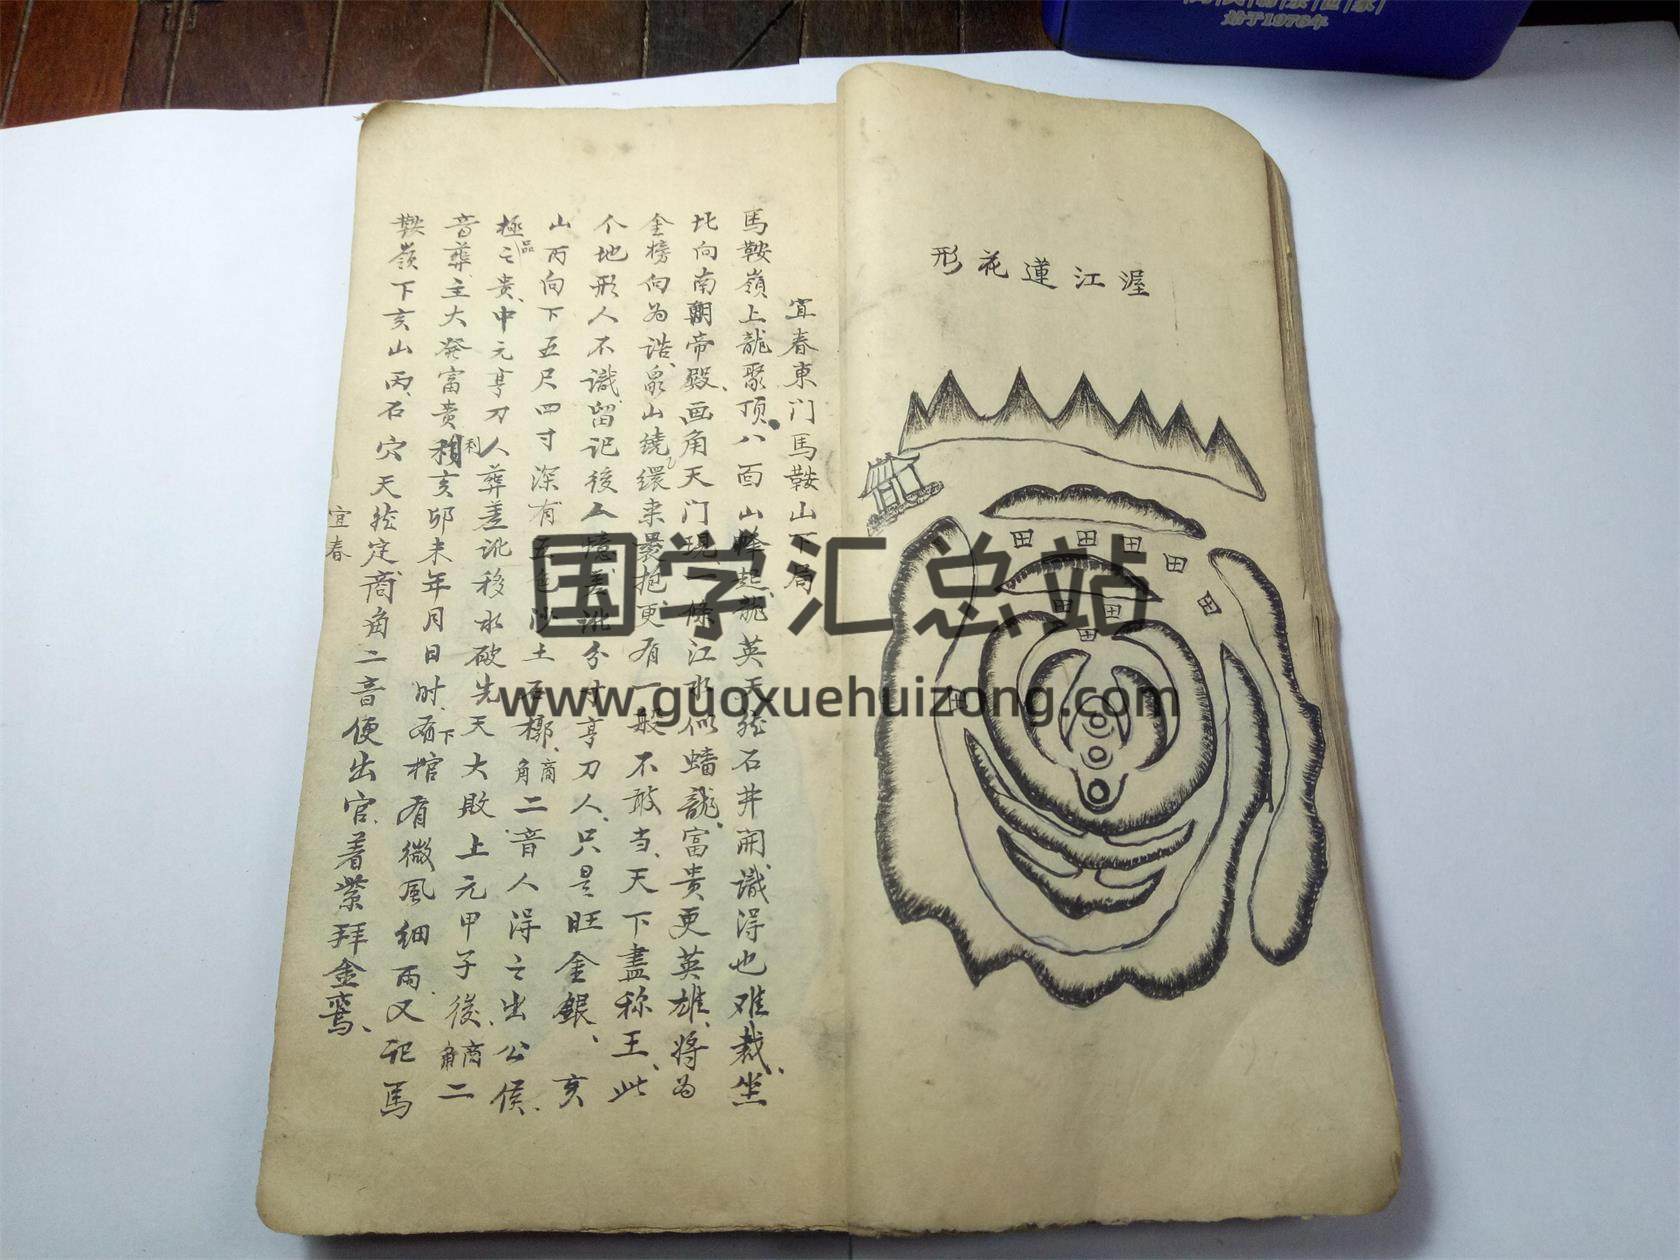 始于1976年
渥江蓮花形
宜春東门馬鞍山下局
馬鞍嶺上龍聚頂八面山峰起龍英天然石井開識得也难裁坐
北向南朝帝殿画角天门現一條江水似蟠龍富贵更英雄将为
金榜向为诰泉山繞缳来景抱更有一般不敢当天下盡称王此
个地形人不識留记後人憶差訛分寸亨刀人只是旺金銀亥
山丙向下五尺四寸深有五色沙土石槨商角二音人得之出公侯
極品之贵中元亨刀人葬差訛移水破先天大敗上元甲子後商角二
音葬主大発富贵利亥卯未年月日时下有棺有微風细雨又记馬
鞍嶺下亥山丙石穴天然定商角二音便出官着紫拜金鸾
宜春
国学汇总站
www.guoxuehuizong.com